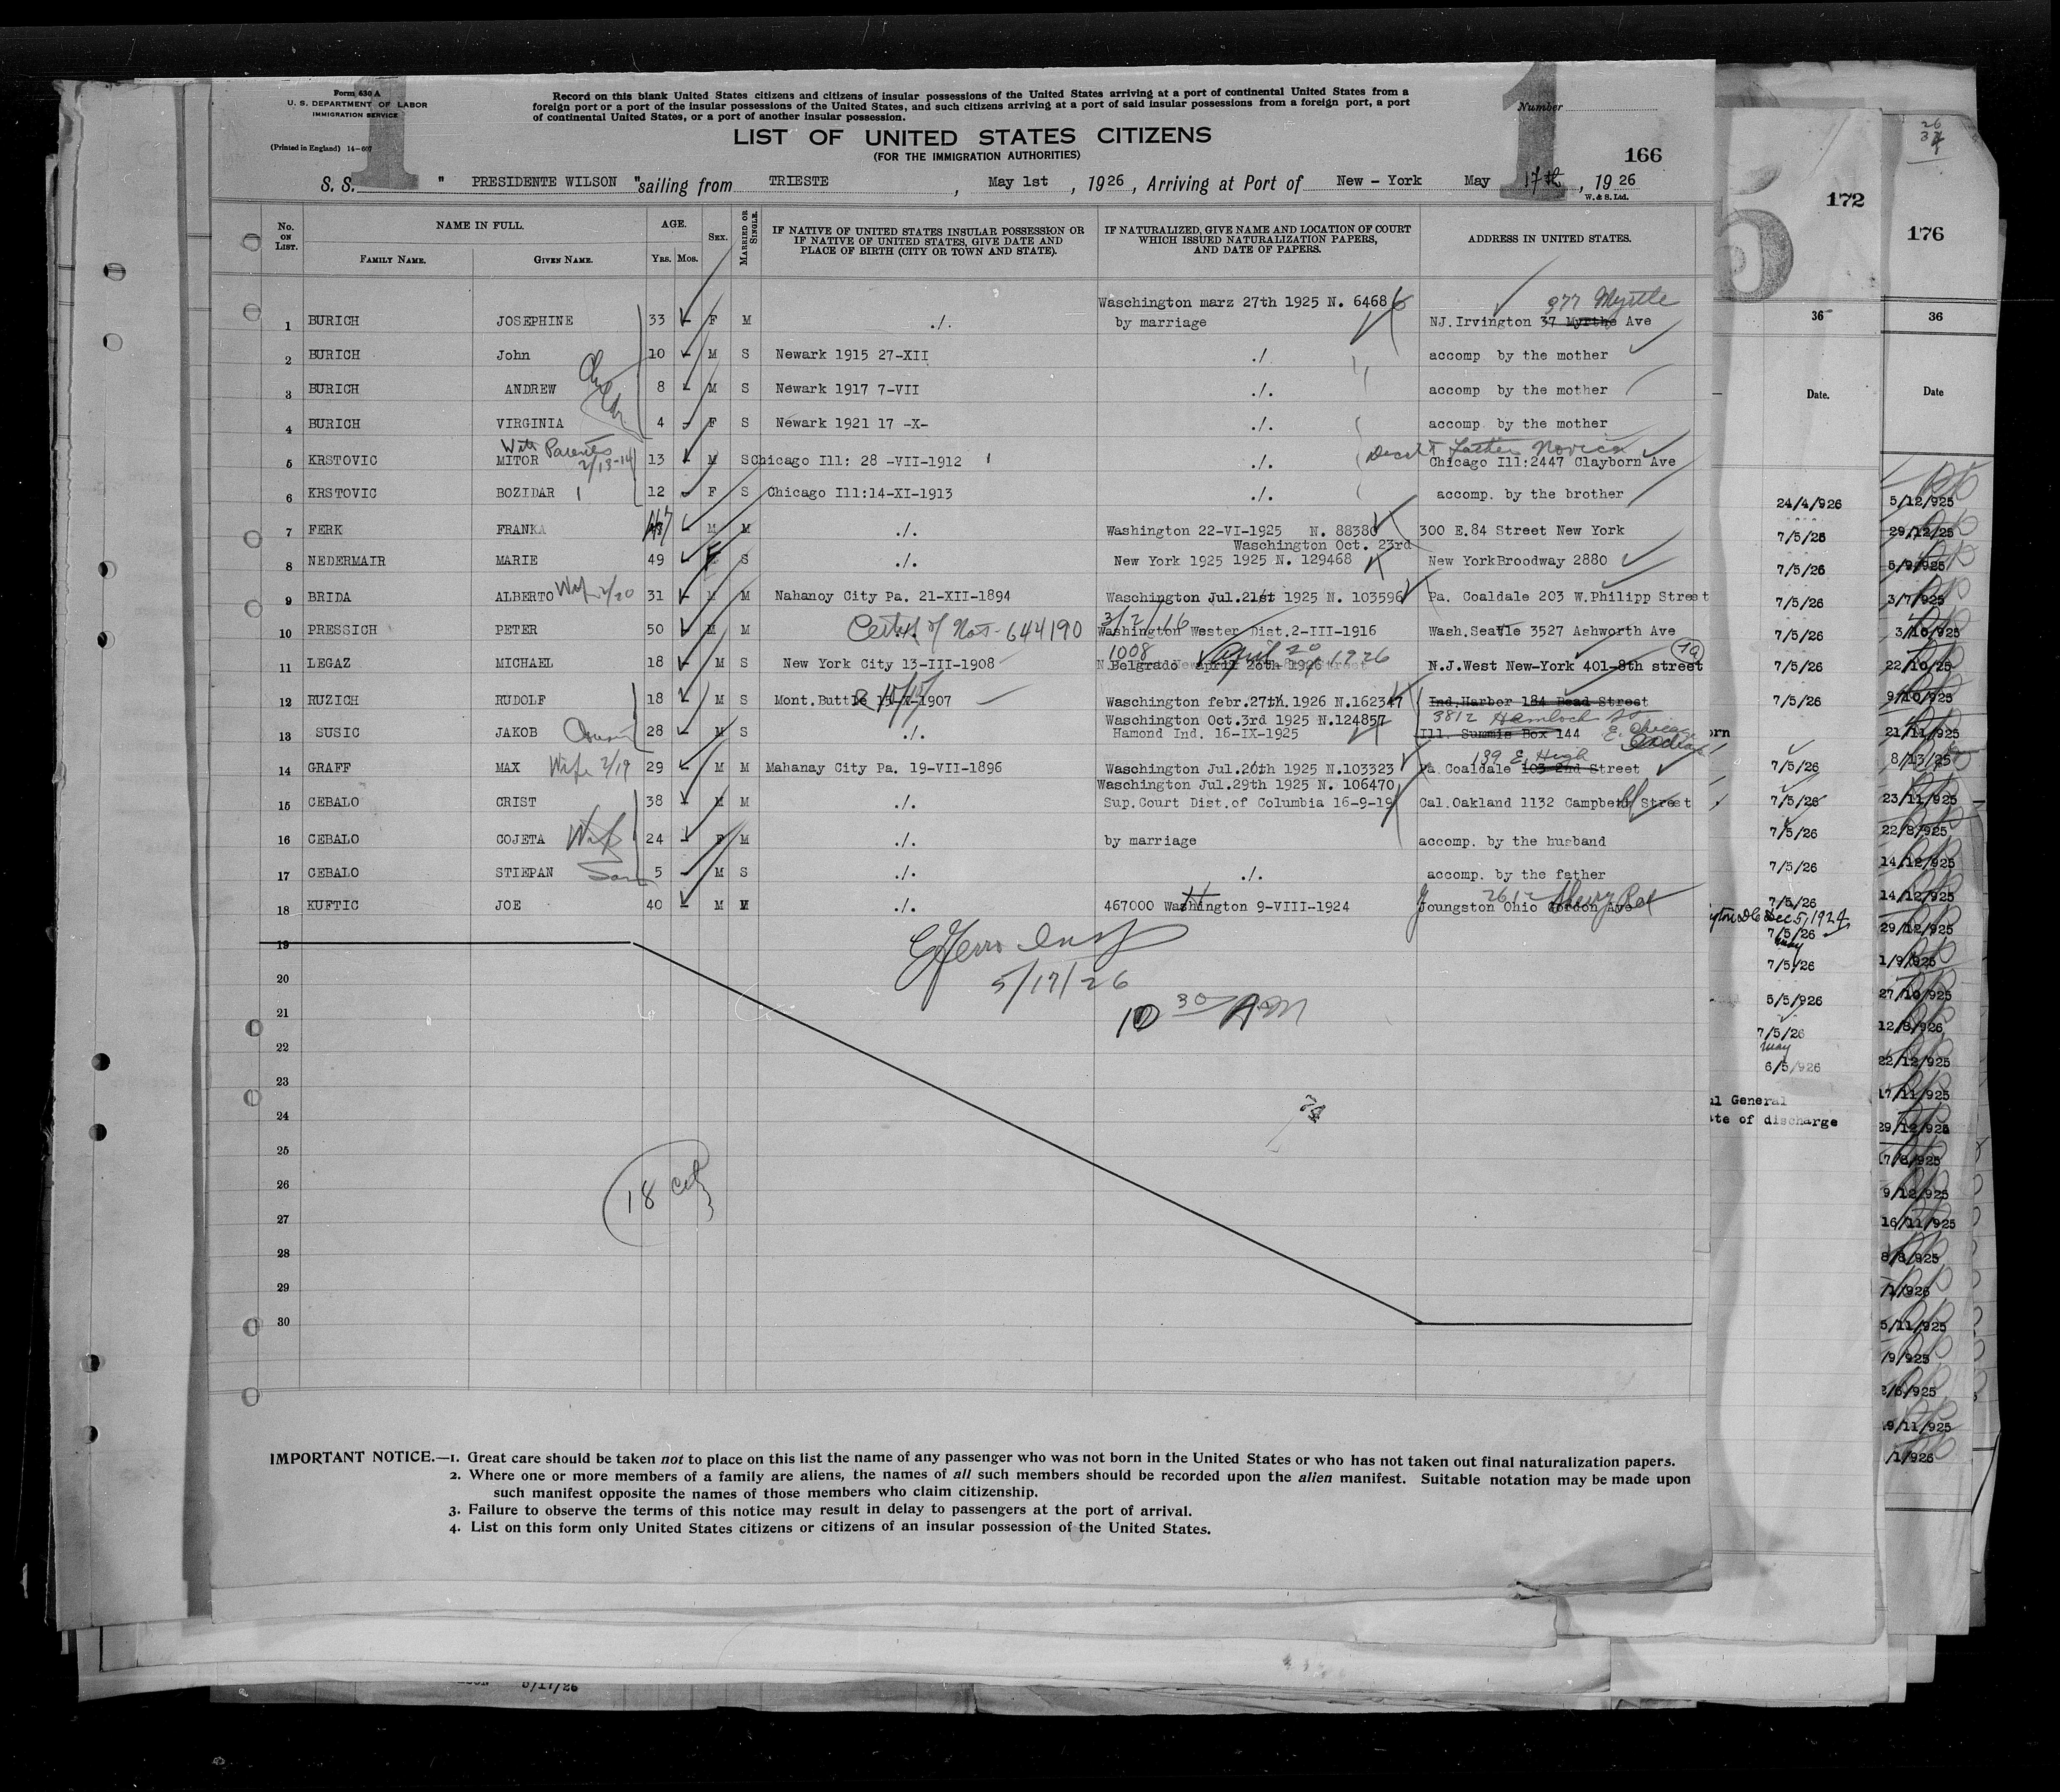 Form 630 A
U. S. DEPARTMENT OF LABOR
IMMIGRATION SERVICE
(Printed in England) 14-607
1
Record on this blank United States citizens and citizens of insular possessions of the United States arriving at a port of continental United States from a
foreign port or a port of the insular possessions of the United States, and such citizens arriving at a port of said insular possessions from a foreign port, a port
of continental United States, or a port of another insular possession.
1
Number
LIST OF UNITED STATES CITIZENS
(FOR THE IMMIGRATION AUTHORITIES)
166
S. S. " PRESIDENTE WILSON " sailing from TRIESTE , May 1st , 1926 , Arriving at Port of New - York May 17th , 19 26
W. & S. Ltd.
No. ON LIST.
NAME IN FULL.
FAMILY NAME.
GIVEN NAME.
AGE.
YRS.
MOS.
SEX.
MARRIED OR SINGLE.
IF NATIVE OF UNITED STATES INSULAR POSSESSION OR
IF NATIVE OF UNITED STATES, GIVE DATE AND
PLACE OF BIRTH (CITY OR TOWN AND STATE).
IF NATURALIZED, GIVE NAME AND LOCATION OF COURT
WHICH ISSUED NATURALIZATION PAPERS,
AND DATE OF PAPERS.
ADDRESS IN UNITED STATES.
Waschington marz 27th 1925 N. 6468 6 977 Myrtle
1 BURICH JOSEPHINE 33 - F M ./. by marriage NJ.Irvington 37 Myrthe Ave
2 BURICH John 10 - M S Newark 1915 27-XII ./. accomp by the mother
3 BURICH ANDREW 8 - M S Newark 1917 7-VII ./. accomp by the mother
4 BURICH VIRGINIA 4 - F S Newark 1921 17 -X- ./. accomp by the mother
With Parents 2/13-14
5 KRSTOVIC MITOR 13 - M S Chicago Ill: 28 -VII-1912 ./. Chicago Ill:2447 Clayborn Ave
6 KRSTOVIC BOZIDAR 12 - F S Chicago Ill:14-XI-1913 ./. accomp. by the brother
7 FERK FRANKA 47 - M M ./. Washington 22-VI-1925 N. 88380 300 E.84 Street New York
Waschington Oct. 23rd
8 NEDERMAIR MARIE 49 - F S ./. New York 1925 1925 N. 129468 New YorkBroodway 2880
9 BRIDA ALBERTO Wife 2/20 31 - M M Nahanoy City Pa. 21-XII-1894 Waschington Jul.21st 1925 N. 103596 Pa. Coaldale 203 W.Philipp Street
3/2/16
10 PRESSICH PETER 50 - M M Certif of Nat-644190 Washington Wester Dist.2-III-1916 Wash.Seatle 3527 Ashworth Ave
1008 April 20 1926
11 LEGAZ MICHAEL 18 - M S New York City 13-III-1908 Belgrado april 20th 1926 N.J.West New-York 401-8th street
12 RUZICH RUDOLF 18 - M S Mont.Buttle 15-X-1907 Waschington febr.27th. 1926 N.162347 Ind.Harbor 184 Dead Street
Waschington Oct.3rd 1925 N.124857 3812 Hemloch
13 SUSIC JAKOB Cousin 28 - M S ./. Hamond Ind. 16-IX-1925 Ill. Summis Box 144 E. Chicago
139 E. High
14 GRAFF MAX Wife 2/19 29 - M M Mahanay City Pa. 19-VII-1896 Waschington Jul.20th 1925 N.103323 Pa. Coaldale 103 2nd Street
Waschington Jul.29th 1925 N. 106470
15 CEBALO CRIST 38 - M M ./. Sup.Court Dist.of Columbia 16-9-19 Cal.Oakland 1132 Campbell Street
16 CEBALO COJETA Wife 24 - F M ./. by marriage accomp. by the husband
17 CEBALO STIEPAN Son 5 - M S ./. ./. accomp. by the father
18 KUFTIC JOE 40 - M M ./. 467000 Washington 9-VIII-1924 Joungston Ohio Gordon Ave 2612
19
20
21
22
23
24
25
26
27
28
29
30
5/17/26
10 30 AM
18
IMPORTANT NOTICE.—1. Great care should be taken not to place on this list the name of any passenger who was not born in the United States or who has not taken out final naturalization papers.
2. Where one or more members of a family are aliens, the names of all such members should be recorded upon the alien manifest. Suitable notation may be made upon
such manifest opposite the names of those members who claim citizenship.
3. Failure to observe the terms of this notice may result in delay to passengers at the port of arrival.
4. List on this form only United States citizens or citizens of an insular possession of the United States.
5
172
36
Date.
24/4/926
7/5/26
7/5/26
7/5/26
7/5/26
7/5/26
7/5/26
orn
7/5/26
7/5/26
7/5/26
7/5/26
7/5/26
Dec 5, 1924
7/5/26
may
7/5/26
5/5/926
7/5/26
may
6/5/926
ul General
ate of discharge
176
36
Date
5/12/925
29/12/25
5/9/925
3/7/925
3/10/925
22/10/25
9/10/925
21/11/925
8/13/25
23/11/925
22/8/925
14/12/925
14/12/925
29/12/925
1/9/925
27/10/925
12/8/926
22/12/925
17/11/925
29/12/925
7/8/925
9/12/925
16/11/925
8/8/925
/1/926
5/11/925
/9/925
2/6/925
9/11/925
/1/926
5/17/26